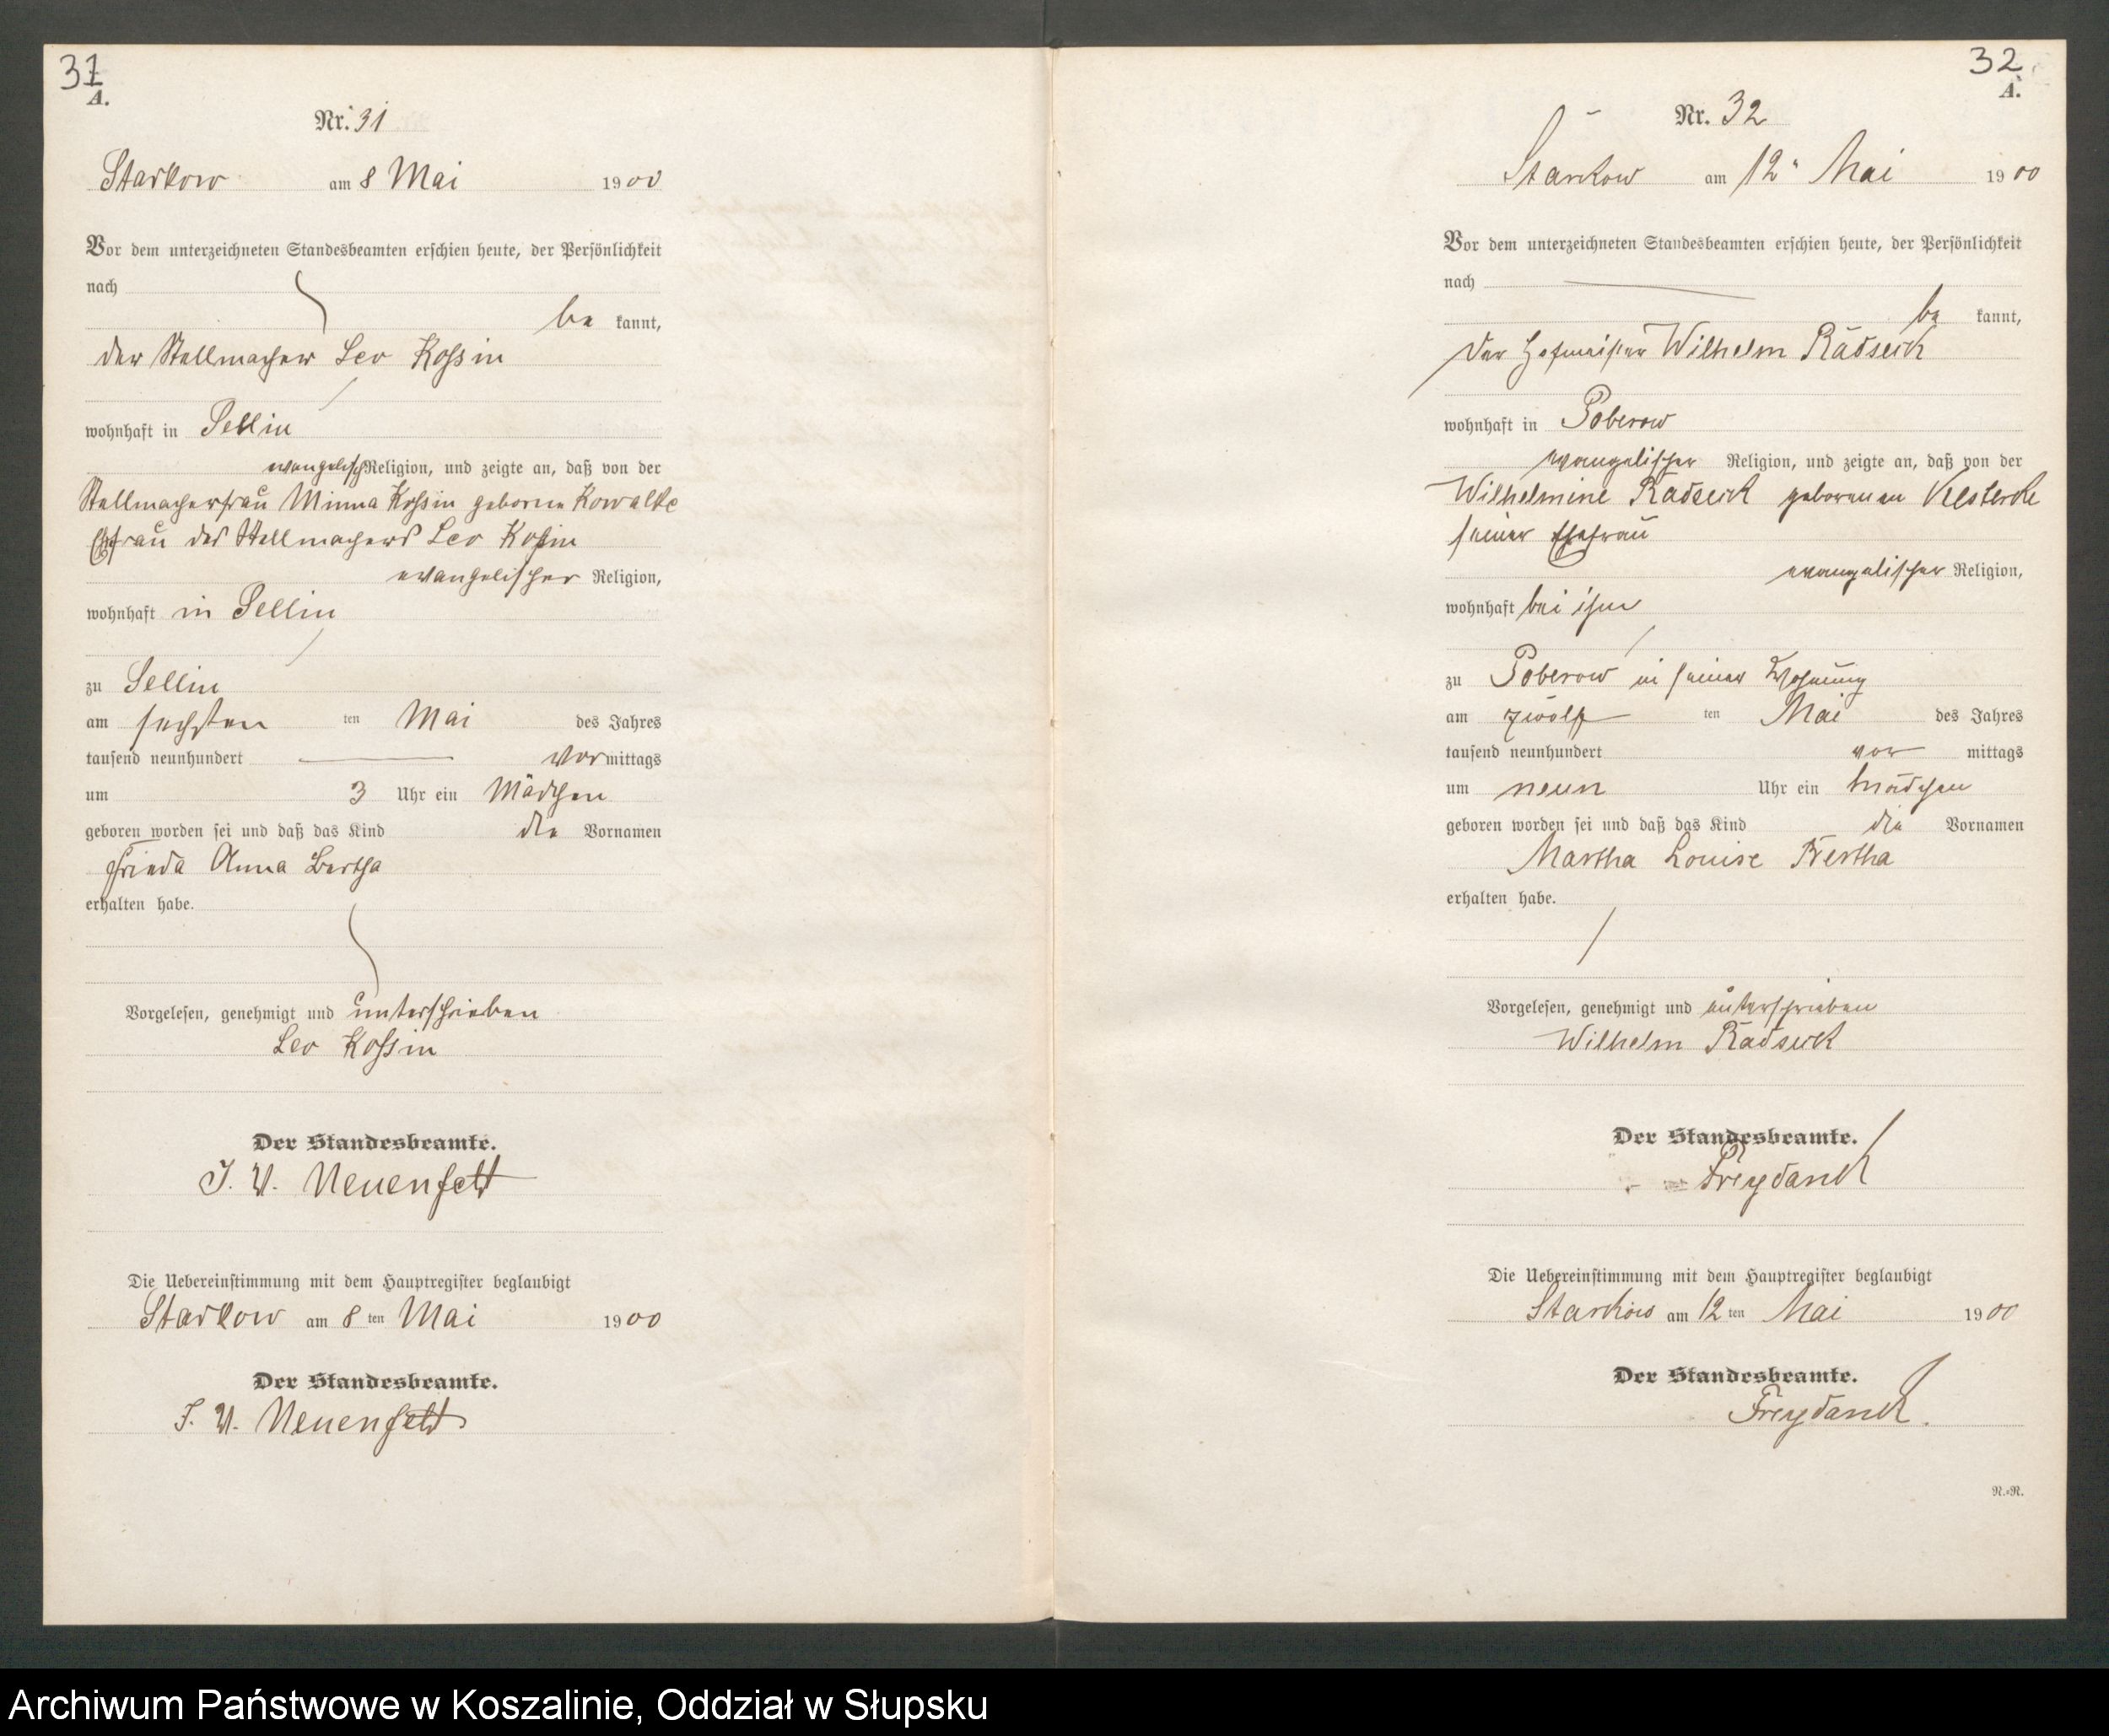 31
A.
Nr. 31
Starkow am 8 Mai 1900
Vor dem unterzeichneten Standesbeamten erschien heute, der Persönlichkeit
nach
be kannt,
der Stellmacher Leo Kossin
wohnhaft in Sellin
evangelisch Religion, und zeigte an, daß von der
Stellmacherfrau Minna Kossin geborne Kowalke
Ehefrau des Stellmachers Leo Kossin
evangelischer Religion,
wohnhaft in Sellin
zu Sellin
am sechsten ten Mai des Jahres
tausend neunhundert vormittags
um 3 Uhr ein Mädchen
geboren worden sei und daß das Kind die Vornamen
Frieda Anna Bertha
erhalten habe.
Vorgelesen, genehmigt und unterschrieben
Leo Kossin
Der Standesbeamte.
J. V. Neuenfeldt
Die Uebereinstimmung mit dem Hauptregister beglaubigt
Starkow am 8 ten Mai 1900
Der Standesbeamte.
J. V. Neuenfeldt
32
A.
Nr. 32
Starkow am 12 Mai 1900
Vor dem unterzeichneten Standesbeamten erschien heute, der Persönlichkeit
nach
be kannt,
der Hofmeister Wilhelm Radseck
wohnhaft in Poberow
evangelischer Religion, und zeigte an, daß von der
Wilhelmine Radseck geborenen
seiner Ehefrau
evangelischer Religion,
wohnhaft bei ihm
zu Poberow in seiner Wohnung
am zwölf ten Mai des Jahres
tausend neunhundert vor mittags
um neun Uhr ein Mädchen
geboren worden sei und daß das Kind die Vornamen
Martha Louise Bertha
erhalten habe.
Vorgelesen, genehmigt und unterschrieben
Wilhelm Radseck
Der Standesbeamte.
Freydanck
Die Uebereinstimmung mit dem Hauptregister beglaubigt
Starkow am 12 ten Mai 1900
Der Standesbeamte.
Freydanck.
N.-N.
Archiwum Państwowe w Koszalinie, Oddział w Słupsku